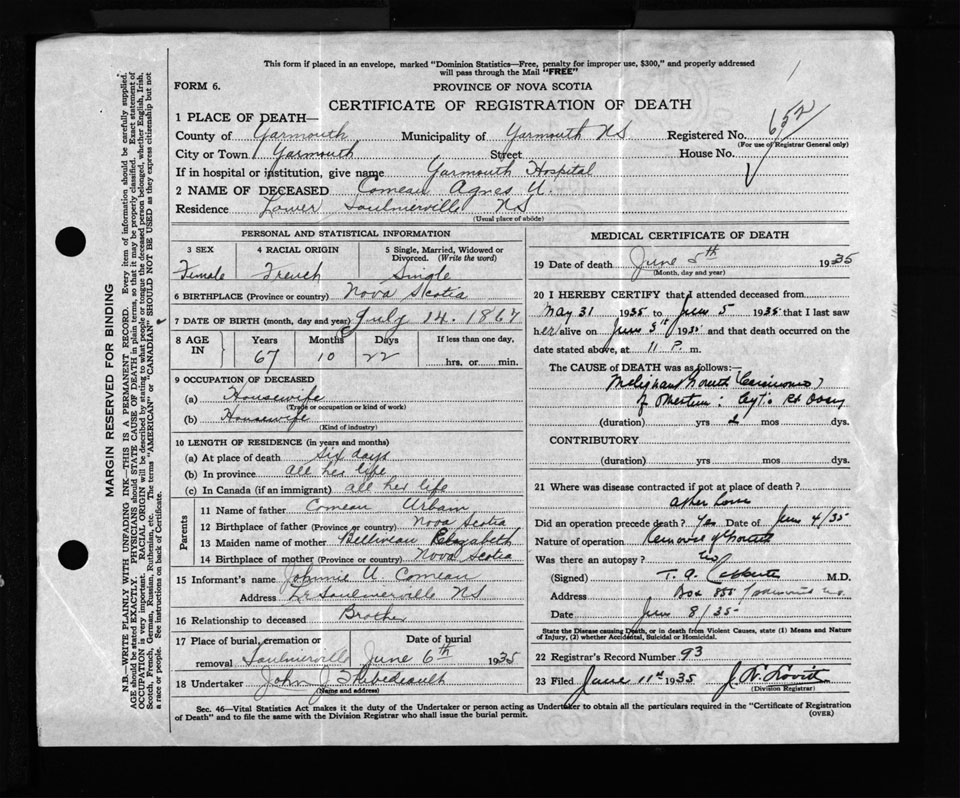 This form if placed in an envelope, marked "Dominion Statistics—Free, penalty for improper use, $300," and properly addressed
will pass through the Mail "FREE"
FORM 6.
PROVINCE OF NOVA SCOTIA
CERTIFICATE OF REGISTRATION OF DEATH
1 PLACE OF DEATH—
County of Yarmouth Municipality of Yarmouth NS Registered No. 652
(For use of Registrar General only)
City or Town Yarmouth Street House No.
If in hospital or institution, give name Yarmouth Hospital
2 NAME OF DECEASED Comeau Agnes U.
Residence Lower Saulnierville NS
(Usual place of abode)
PERSONAL AND STATISTICAL INFORMATION
3 SEX 4 RACIAL ORIGIN 5 Single, Married, Widowed or
Divorced. (Write the word)
Female French Single
6 BIRTHPLACE (Province or country) Nova Scotia
7 DATE OF BIRTH (month, day and year) July 14. 1867
8 AGE IN Years Months Days If less than one day,
67 10 22 hrs. or min.
9 OCCUPATION OF DECEASED
(a) Housewife
(Trade or occupation or kind of work)
(b) Housewife
(Kind of industry)
10 LENGTH OF RESIDENCE (in years and months)
(a) At place of death Six days
(b) In province all her life
(c) In Canada (if an immigrant) all her life
Parents
11 Name of father Comeau Urbain
12 Birthplace of father (Province or country) Nova Scotia
13 Maiden name of mother Belliveau Elizabeth
14 Birthplace of mother (Province or country) Nova Scotia
15 Informant's name Johnnie U Comeau
Address Lr Saulnierville NS
16 Relationship to deceased Brother
17 Place of burial, cremation or Date of burial
removal Saulnierville June 6th 1935
18 Undertaker John J Thibedeault
(Name and address)
MEDICAL CERTIFICATE OF DEATH
19 Date of death June 5th 1935
(Month, day and year)
20 I HEREBY CERTIFY that I attended deceased from
May 31 1935 to June 5 1935 that I last saw
her alive on June 5th 1935 and that death occurred on
date stated above, at 11 P. m.
The CAUSE of DEATH was as follows:—
Malignant Growth (Carcinoma)
of : Cyst: Rt Ovary
(duration) yrs 2 mos dys.
CONTRIBUTORY
(duration) yrs mos dys.
21 Where was disease contracted if not at place of death?
at her home
Did an operation precede death? Yes Date of June 4/35
Nature of operation Removal of Growth
Was there an autopsy? No
(Signed) T. A. M.D.
Address Box 855 Yarmouth N.S.
Date June 8/35
State the Disease causing Death, or in death from Violent Causes, state (1) Means and Nature
of Injury, (2) whether Accidental, Suicidal or Homicidal.
22 Registrar's Record Number 93
23 Filed June 11th 1935 J. N. Lovitt
(Division Registrar)
Sec. 46—Vital Statistics Act makes it the duty of the Undertaker or person acting as Undertaker to obtain all the particulars required in the "Certificate of Registration
of Death" and to file the same with the Division Registrar who shall issue the burial permit. (OVER)
MARGIN RESERVED FOR BINDING
N.B.—WRITE PLAINLY WITH UNFADING INK—THIS IS A PERMANENT RECORD. Every item of information should be carefully supplied.
AGE should be stated EXACTLY. PHYSICIANS should STATE CAUSE OF DEATH in plain terms, so that it may be properly classified. Exact statement of
OCCUPATION is very important. RACIAL ORIGIN will be described by stating to what people or tongue the deceased person belonged, whether English, Irish,
Scotch, French, German, Russian, Ruthenian, etc. The terms "AMERICAN" or "CANADIAN" SHOULD NOT BE USED as they express citizenship but not
a race or people. See instructions on back of Certificate.